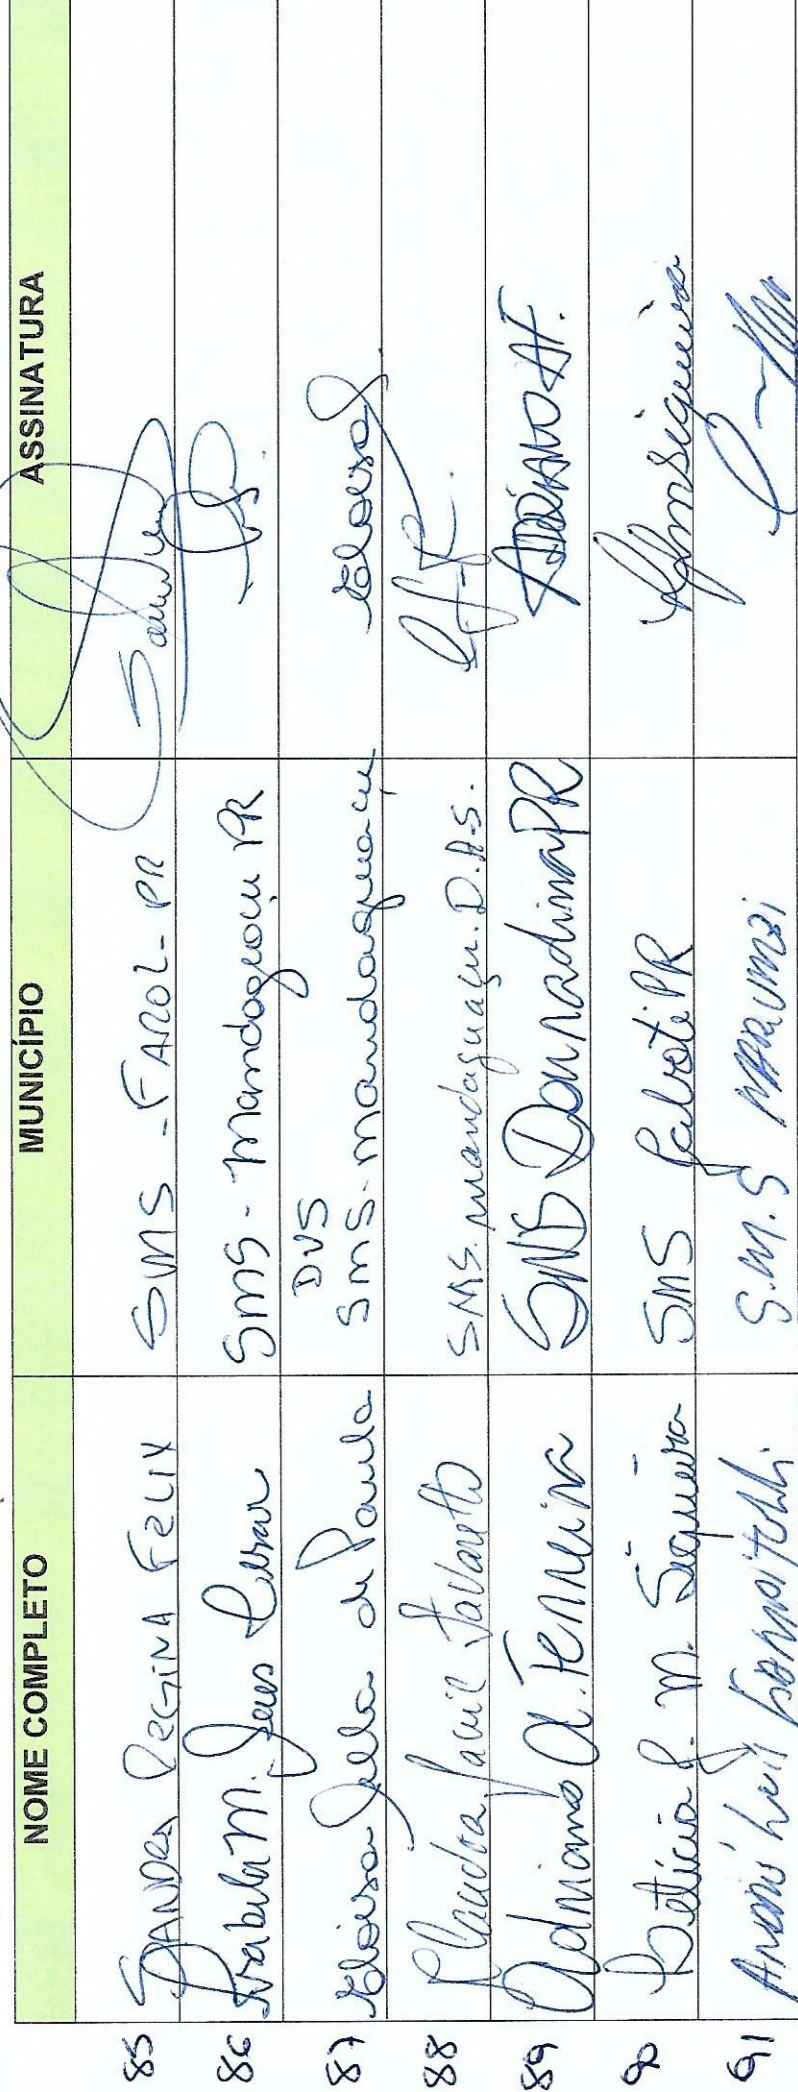 NOME COMPLETO MUNICÍPIO ASSINATURA
85 SANDRA REGINA FELIX SMS - FAROL - PR Sandra
86 M. Jesus Cesar SMS - Mandaguaçu PR
DVS
87 Eloisa de Paula SMS - Mandaguaçu Eloisa
88 Claudia Favaretto SMS. Mandaguaçu. D.A.S.
89 Adriano A. Ferreira SMS Douradina PR ADRIANO AF.
90 Leticia M. Siqueira SMS Jaboti PR Siqueira
91 André Luis S.M.S MARUMBI